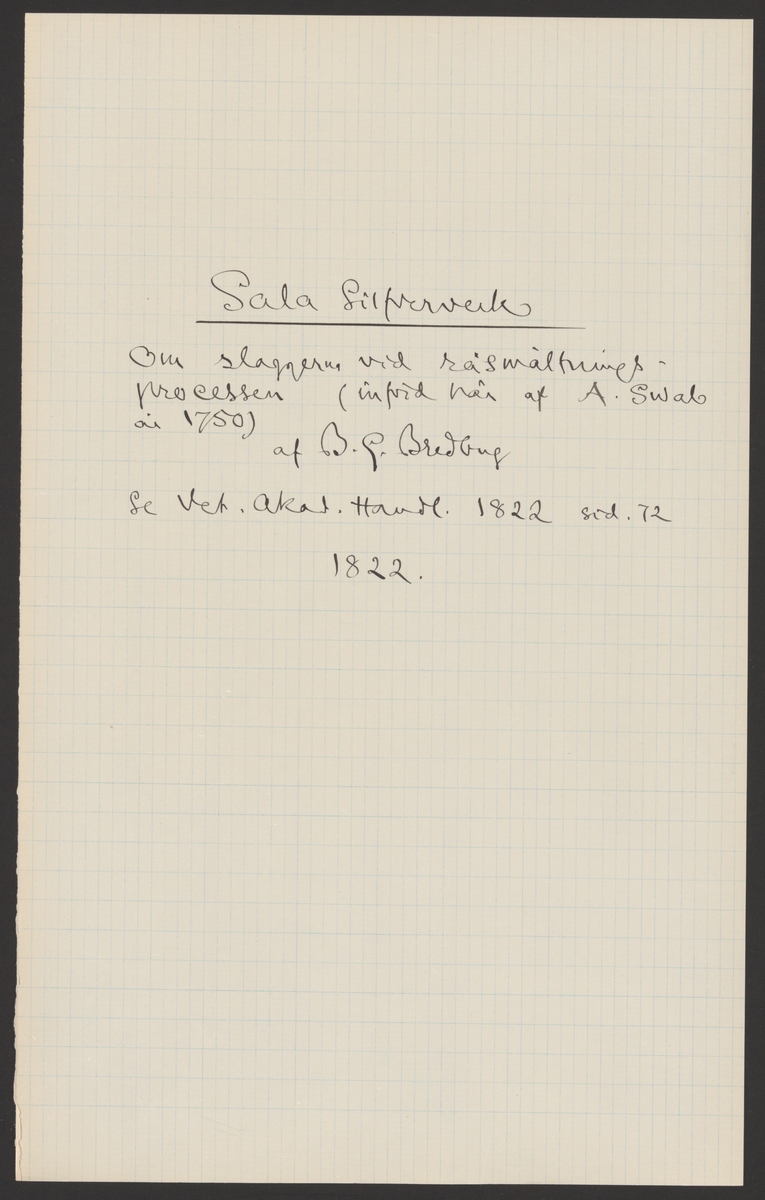 Sala Silfververk
Om slaggerna vid råsmältnings-
processen (införd här af A. Swab
år 1750)
af B. G. Bredberg
Se Vet. Akad. Handl. 1822 sid. 72
1822.